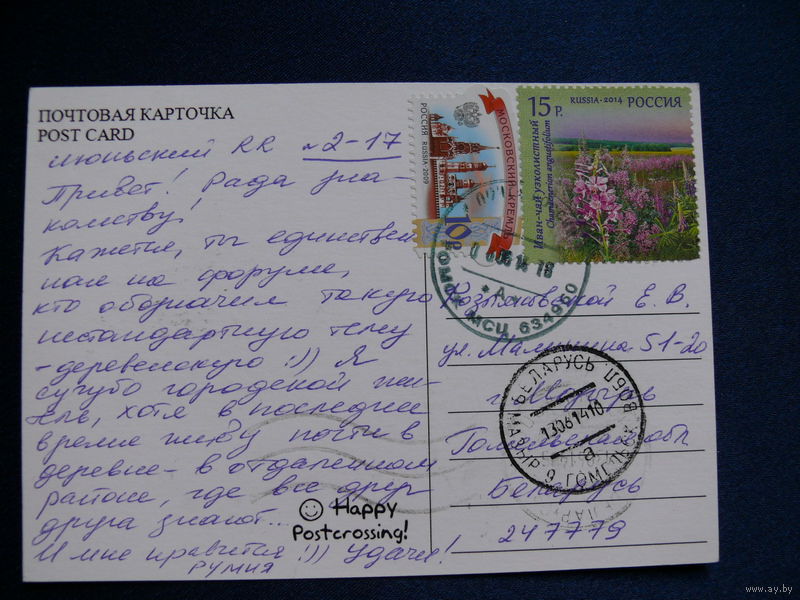 ПОЧТОВАЯ КАРТОЧКА
POST CARD
июньский RR №2-17
Привет! Рада зна-
комству!
Кажется, ты единствен
ная на форуме,
кто обозначил такую
нестандартную тему
-деревенскую!)) Я
сугубо городской жи-
тель, хотя в последнее
время живу почти в
деревне - в отдаленном
районе, где все друг
друга знают...
И мне нравится!)) Удачи!
РУМИЯ
Happy
Postcrossing!
РОССИЯ RUSSIA 2009
МОСКОВСКИЙ КРЕМЛЬ
10 Р
15 Р.
RUSSIA·2014 РОССИЯ
Иван-чай узколистный
Chamaenerion angustifolium
06 14 18
А
ТОМСК МСЦ 634960
Е. В.
ул. Малинина 51-20
г. Мозырь
Гомельская обл
Беларусь
247779
БЕЛАРУСЬ
130614 10
а
МАЗЫР 9 ГОМЕЛЬСК. В
www.ay.by